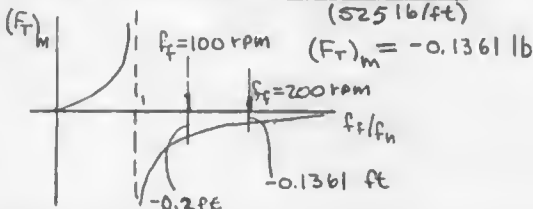 (525 lb/ft)
(F_T)_M
f_f=100 rpm
(F_T)_M = -0.1361 lb
f_f=200 rpm
f_f/f_n
-0.1361 ft
-0.2 ft